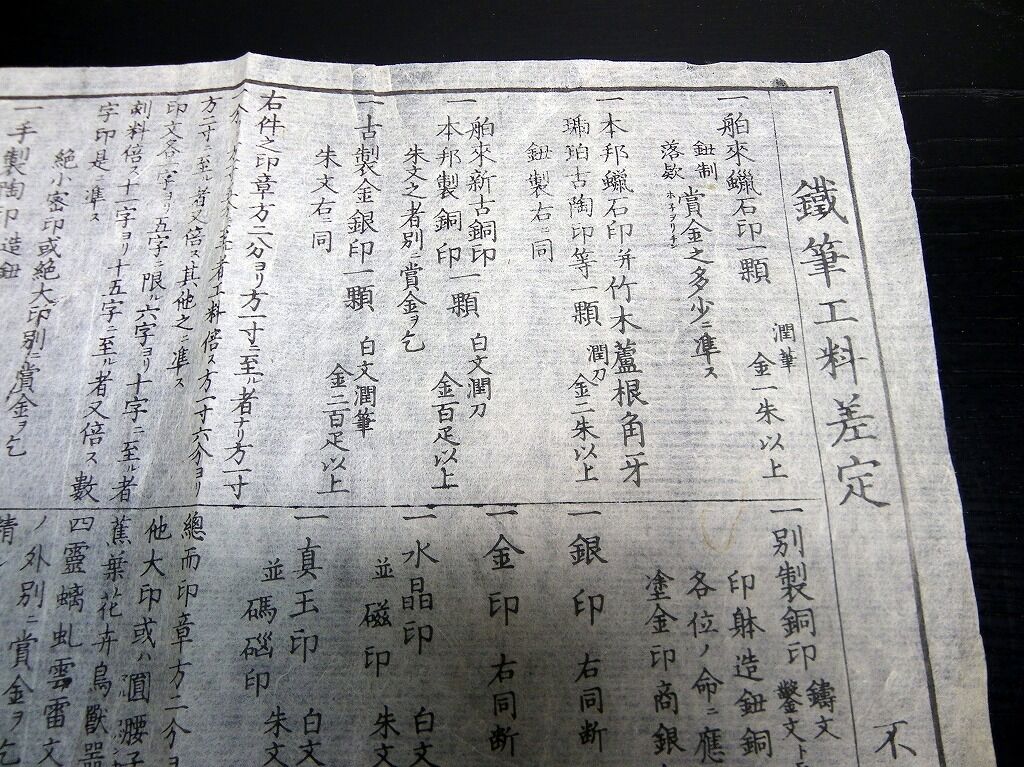 鐵筆工料差定
不
一舶來蠟石印一顆 潤筆金一朱以上
鈕制落欵 賞金之多少ニ準ス
ホネヲリチン
一本邦蠟石印并竹木蘆根角牙
瑪珀古陶印等一顆 潤刀金二朱以上
鈕製右ニ同
舶來新古銅印
一本邦製銅印一顆 白文潤刀金百疋以上
朱文之者別ニ賞金ヲ乞
一古製金銀印一顆 白文潤筆金二百疋以上
朱文右ニ同
右件之印章方二分ヨリ方一寸ニ至ル者ナリ方一寸
者工料倍ス方一寸六分ヨリ
方二寸ニ至ル者又倍ス其他之ニ準ス
印文各一字ヨリ五字ニ限ル六字ヨリ十字ニ至ル者
刻料倍ス十一字ヨリ十五字ニ至ル者又倍ス數
字印是ニ準ス
絶小密印或絶大印別ニ賞金ヲ乞
一手製陶印造鈕
一別製銅印 鑄文鑿文ト
印躰造鈕銅
各位ノ命ニ應
塗金印商銀
一銀印 右同断
一金印 右同断
一水晶印 白文
並磁印 朱文
一真玉印 白文
並碼碯印 朱文
總而印章方二分ヨ
他大印或ハ圓腰子
蕉葉花卉鳥獸器
四靈螭虬雲雷文
ノ外別ニ賞金ヲ乞
精